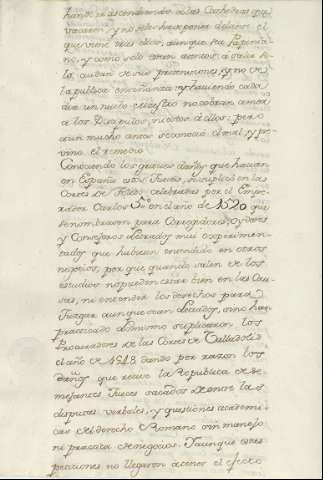 han de ir ascendiendo a las Cathedras que
vacaren, y no se les ha de poner delante el
que viene tras ellos, aunque sea
no, y como solo estan atentos a salir
lo, cuidan de sus pretensiones, y no de
la publica enseñanza, y haviendo cada
dia un nuevo cathedratico no cobran amor
a los Discipulos, ni estos a ellos: pero
aun mucho antes se conoció el mal, y pre
vino el remedio
Conociendo los graves daños que hacian
en España estos Jueces, se suplicó en las
Cortes de Toledo celebradas por el Empe
rador Carlos 5.to en el año de 1520 que
se nombrasen para Corregidores, Oydores
y Consejeros Letrados mui experimen
tados que hubiesen entendido en otros
negocios, por que quando salen de los
estudios no pueden estar bien en las Cau
sas, ni entender los derechos para
Juzgar aunque sean Letrados, sino han
practicado. Lo mismo suplicaron los
Procuradores de las Cortes de Valladolid
el año de 1548 dando por razon los
daños que recive la Republica de se
mejantes Jueces sacados de entre las
disputas verbales, y questiones academi
cas del derecho Romano sin manejo
ni practica de negocios. Y aunque estas
peticiones no llegaron a tener el efecto